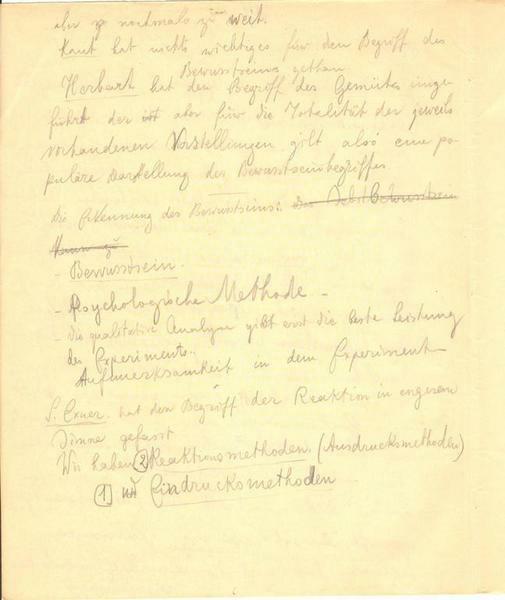 aber so nochmals zu weit.
Kant hat nichts wichtiges für den Begriff des
Bewusstseins gethan.
Herbart hat den Begriff des Gemütes einge-
führt der ist aber für die Totalität der jeweils
vorhandenen Vorstellungen gilt also eine po-
puläre Darstellung des Bewusstseinsbegriffes
Die Erkennung des Bewusstseins: Selbstbewusstsein
- Bewusstsein.
- Psychologische Methode -
- die qualitative Analyse gibt erst die beste Leistung
des Experiments.
Aufmerksamkeit in dem Experiment
S. Exner. hat den Begriff der Reaktion in engerem
Sinne gefasst
Wir haben 2 Reaktionsmethoden. (Ausdrucksmethoden)
1 und Eindrucksmethoden